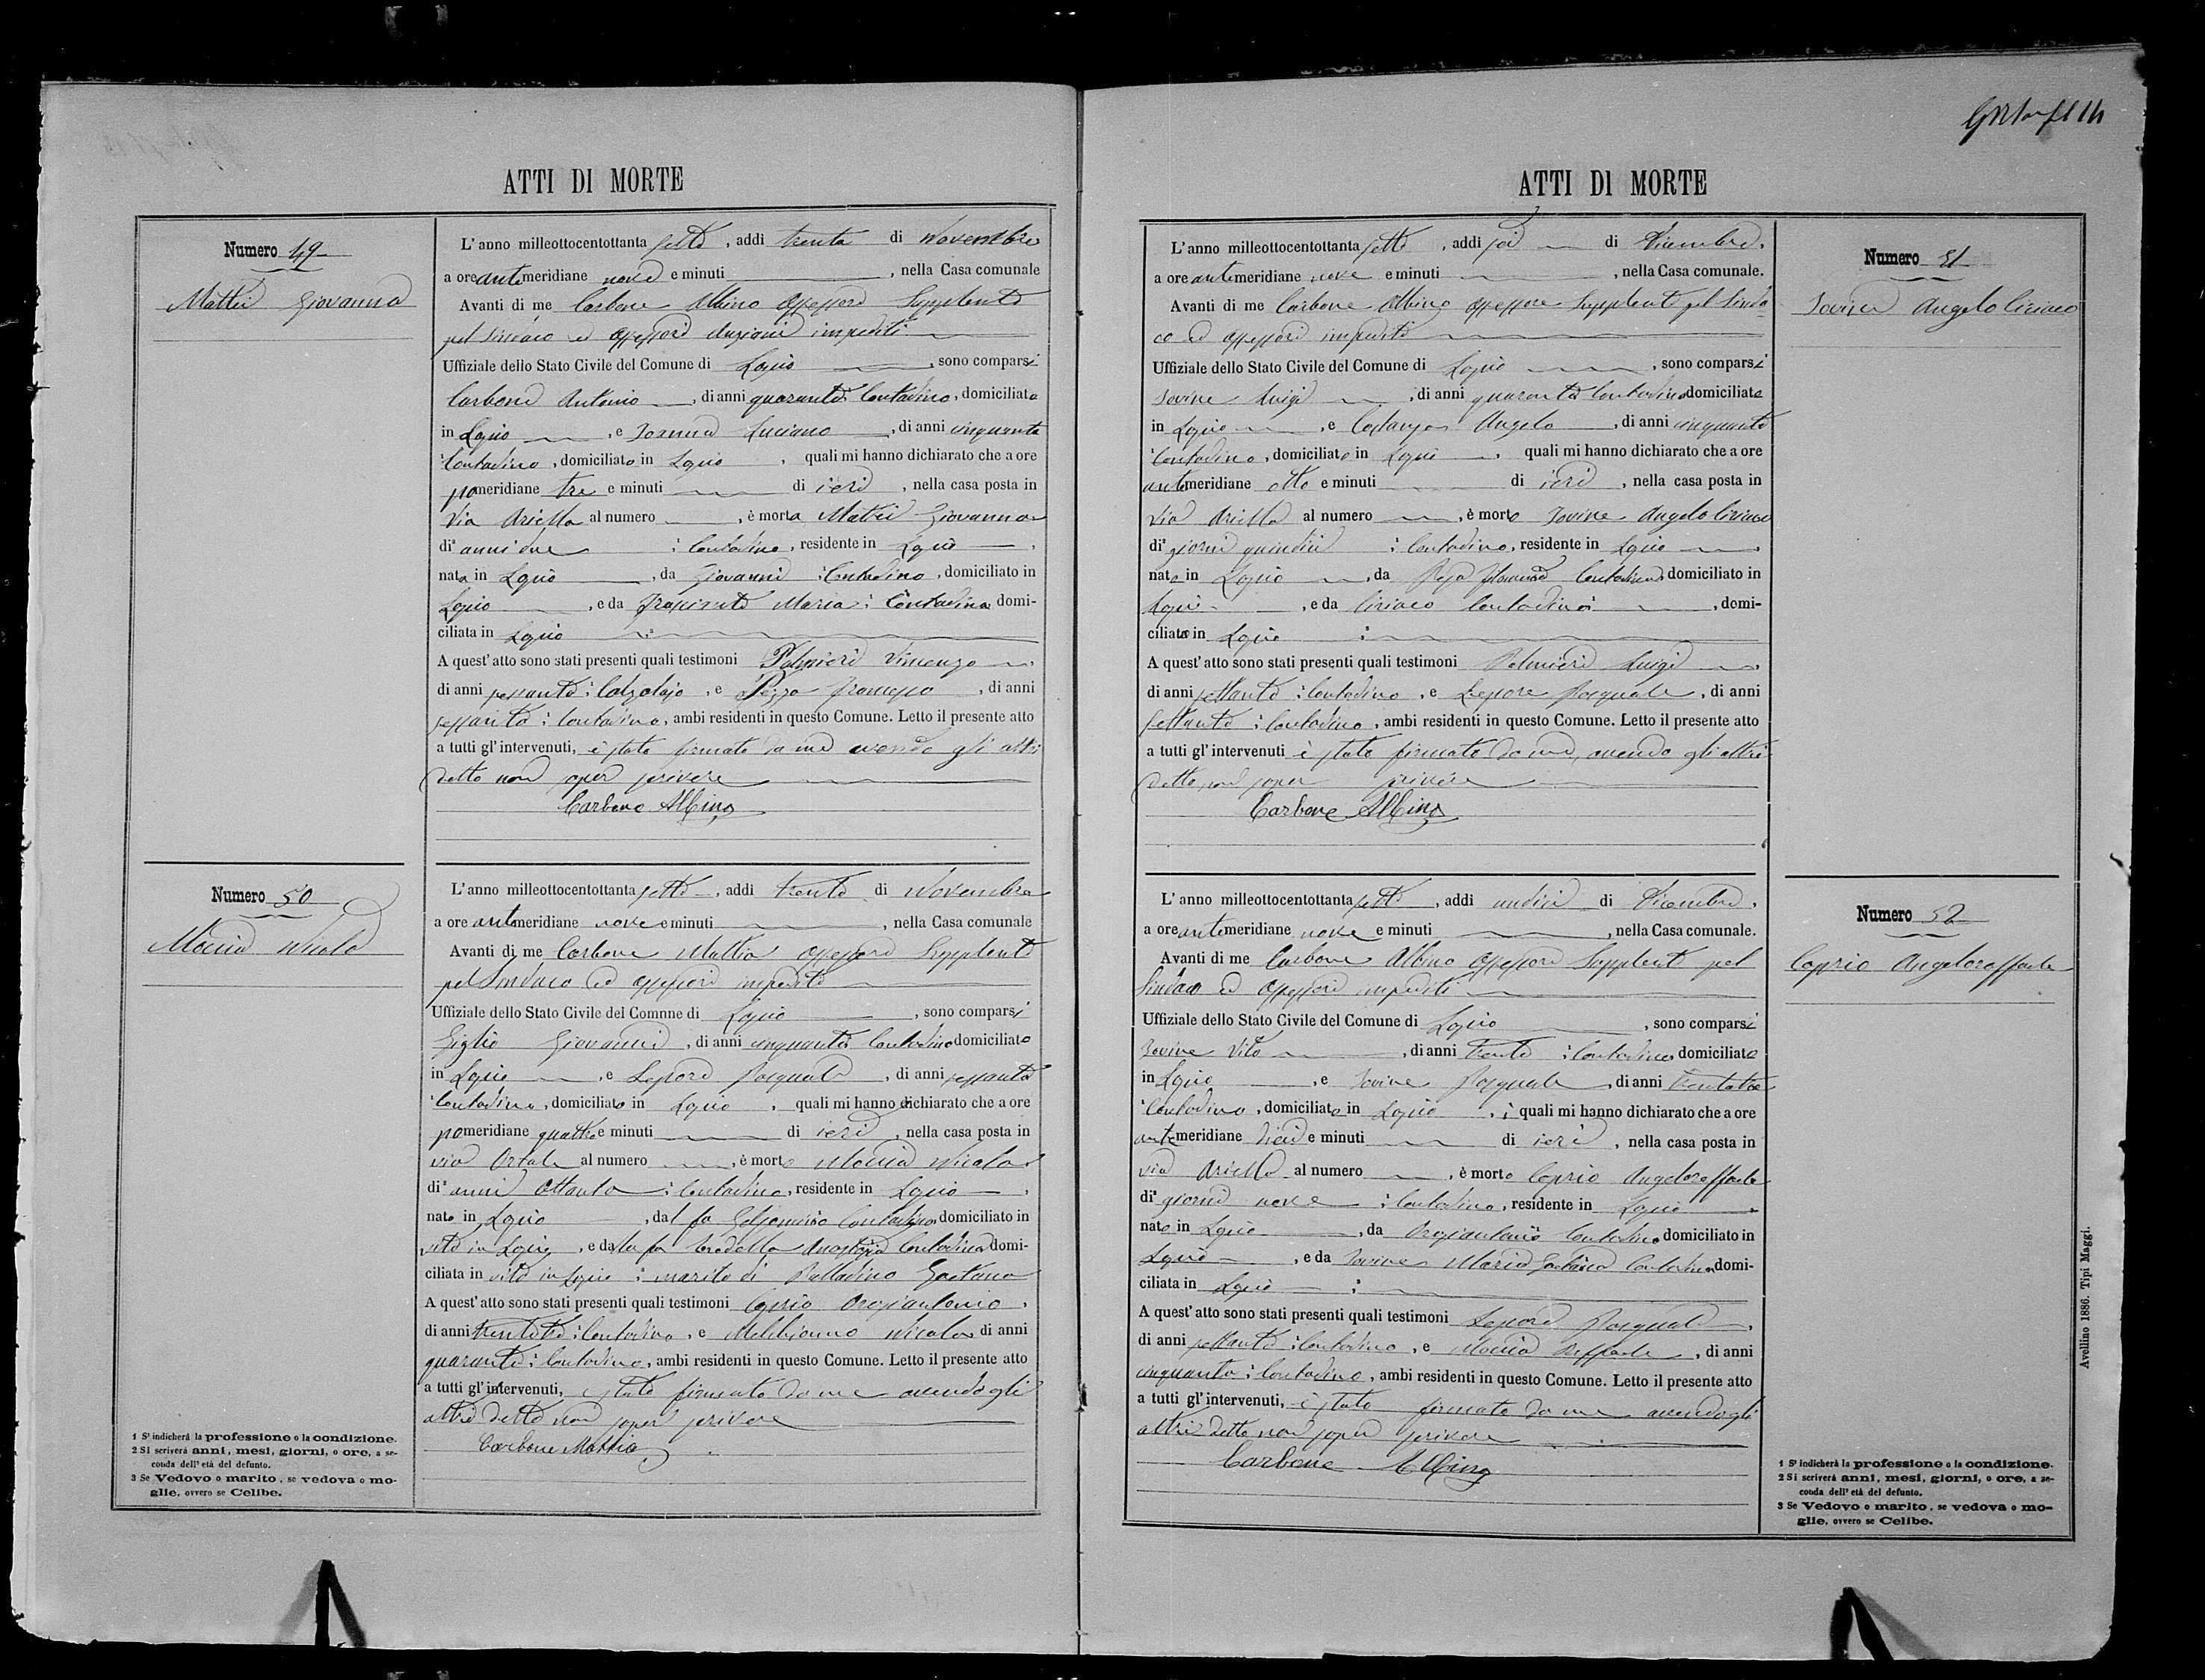 ATTI DI MORTE
Numero 49
Mattei Giovanna
L'anno milleottocentottanta sette, addi trenta di Novembre
a ore antemeridiane nove e minuti , nella Casa comunale
Avanti di me Carbone Albino Assessore Supplente
pel Sindaco ed assessori anziani impediti
Uffiziale dello Stato Civile del Comune di Lapio , sono comparsi
Carbone Antonio , di anni quaranta: Contadino, domiciliato
in Lapio , e Luciano , di anni cinquanta
Contadino, domiciliato in Lapio , quali mi hanno dichiarato che a ore
pomeridiane tre e minuti di ieri , nella casa posta in
Via Ariella al numero , è morta Mattei Giovanna
di anni due : Contadina, residente in Lapio
nata in Lapio , da Giovanni : Contadino, domiciliato in
Lapio , e da Maria: Contadina domi-
ciliata in Lapio
A quest'atto sono stati presenti quali testimoni Palmieri Vincenzo
di anni sessanta: Calzolajo, e Francesco , di anni
sessanta: Contadino, ambi residenti in questo Comune. Letto il presente atto
a tutti gl'intervenuti, è stato firmato da me avendo gli altri
detto non saper scrivere
Carbone Albino
Numero 50
Moccia Nicola
L'anno milleottocentottanta sette, addi trenta di Novembre
a ore antemeridiane nove e minuti , nella Casa comunale
Avanti di me Carbone Mattia Assessore Supplente
pel Sindaco ed assessori impediti
Uffiziale dello Stato Civile del Comnne di Lapio , sono comparsi
Giglio Giovanni , di anni cinquanta: Contadino domiciliato
in Lapio , e Lepore Pasquale , di anni sessanta
Contadino, domiciliato in Lapio , quali mi hanno dichiarato che a ore
pomeridiane quattro e minuti di ieri , nella casa posta in
via Ortale al numero , è morto Moccia Nicola
di anni ottanta : Contadino, residente in Lapio
nato in Lapio , dal fu Contadino domiciliato in
vita in Lapio, e dalla fu Contadina domi-
ciliata in vita in Lapio : marito di Palladino Gaetana
A quest'atto sono stati presenti quali testimoni Caprio Orosiantonio
di anni : Contadino, e Melchionno Nicola di anni
quaranta: Contadino, ambi residenti in questo Comune. Letto il presente atto
a tutti gl'intervenuti, è stato firmato da me avendo gli
altri detto non saper scrivere
Carbone Mattia
1 S' indicherà la professione o la condizione.
2 Si scriverà anni, mesi, giorni, o ore, a se-
conda dell' età del defunto.
3 Se Vedovo o marito, se vedova o mo-
glie, ovvero se Celibe.
ATTI DI MORTE
Numero 51
Iovine Angelo Ciriaco
L'anno milleottocentottanta sette , addi sei di Dicembre
a ore antemeridiane nove e minuti , nella Casa comunale.
Avanti di me Carbone Albino Assessore Supplente pel Sinda-
co ed assessori impediti
Uffiziale dello Stato Civile del Comune di Lapio , sono comparsi
Iovine Luigi , di anni quaranta Contadino domiciliato
in Lapio , e Costanzo Angelo , di anni cinquanta
Contadino, domiciliato in Lapio , quali mi hanno dichiarato che a ore
antemeridiane otto e minuti di ieri , nella casa posta in
via Ariella al numero , è morto Iovine Angelo Ciriaco
di giorni quindici : Contadino, residente in Lapio
nato in Lapio , da Contadina domiciliato in
Lapio , e da Ciriaco Contadino , domi-
ciliato in Lapio
A quest'atto sono stati presenti quali testimoni Palmieri Luigi
di anni settanta: Contadino, e Lepore Pasquale, di anni
settanta: Contadino, ambi residenti in questo Comune. Letto il presente atto
a tutti gl'intervenuti è stato firmato da me, avendo gli altri
detto non saper scrivere
Carbone Albino
Numero 52
Caprio Angeloraffaele
L'anno milleottocentottanta sette , addi undici di Dicembre
a ore antemeridiane nove e minuti , nella Casa comunale.
Avanti di me Carbone Albino Assessore Supplente pel
Sindaco ed assessori impediti
Uffiziale dello Stato Civile del Comune di Lapio , sono comparsi
Iovine Vito , di anni trenta : Contadino domiciliato
in Lapio , e Iovine Pasquale , di anni trentatre
Contadino, domiciliato in Lapio , i quali mi hanno dichiarato che a ore
antemeridiane dieci e minuti di ieri , nella casa posta in
via Ariella al numero , è morto Caprio Angeloraffaele
di giorni nove : Contadino, residente in Lapio
nato in Lapio , da Orosiantonio Contadino domiciliato in
Lapio , e da Iovine Maria Contadina domi-
ciliata in Lapio
A quest'atto sono stati presenti quali testimoni Lepore Pasquale
di anni settanta: Contadino, e Moccia Raffaele , di anni
cinquanta: Contadino, ambi residenti in questo Comune. Letto il presente atto
a tutti gl'intervenuti, è stato firmato da me avendo gli
altri detto non saper scrivere
Carbone Albino
1 S' indicherà la professione o la condizione.
2 Si scriverà anni, mesi, giorni, o ore, a se-
conda dell' età del defunto.
3 Se Vedovo o marito, se vedova o mo-
glie, ovvero se Celibe.
Avellino 1886. Tipi Maggi.